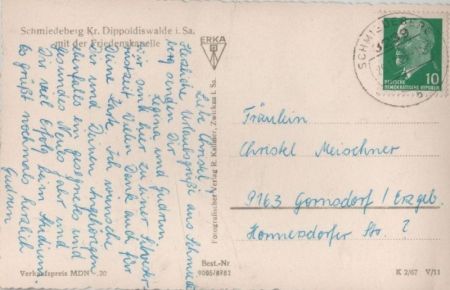 Schmiedeberg Kr. Dippoldiswalde i. Sa.
mit der Friedenskapelle
Liebe Christel!
Herzliche Urlaubsgrüße aus Schmiede
berg senden Dir
Regina und Gudrun.
Wir sind hier zu einer
Vielen Dank auch für
Deine Karte. Ich wünsche
Dir und Deinen Angehörigen
ebenfalls ein gesegnetes und
gesundes Neues Jahr und
Dir viel Erfolg beim Studium.
Es grüßt nochmals herzlich
Gudrun
Verkaufspreis MDN -.20
ERKA
Fotografischer Verlag R. Kallmer, Zwickau i. Sa.
Best.-Nr
9005/8982
SCHMIEDEBERG
DEUTSCHE
DEMOKRATISCHE REPUBLIK
10
Fräulein
Christel Meischner
9163 Gornsdorf / Erzgeb.
Hormersdorfer Str. 2
K 2/67 V/11